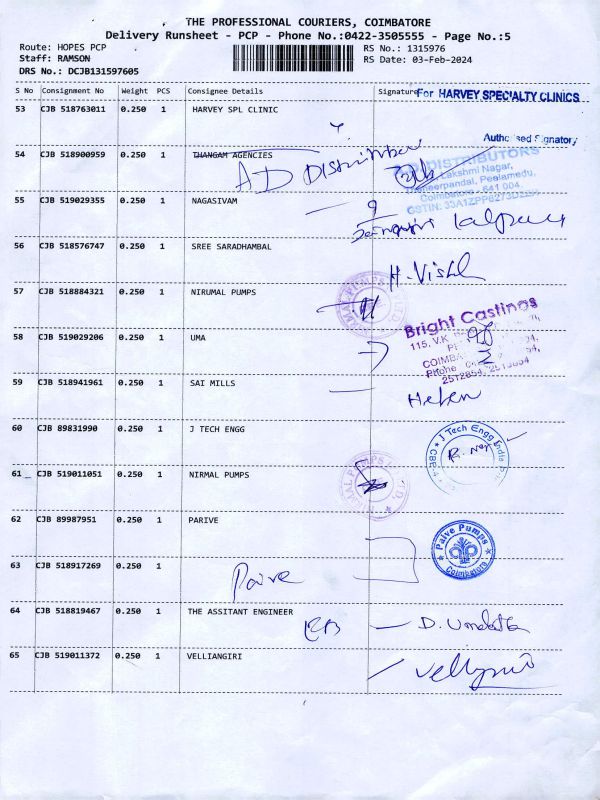 THE PROFESSIONAL COURIERS, COIMBATORE
Delivery Runsheet - PCP - Phone No.:0422-3505555 - Page No.:5
Route: HOPES PCP
RS No.: 1315976
Staff: RAMSON
RS Date: 03-Feb-2024
DRS No.: DCJB131597605
S No Consignment No Weight PCS Consignee Details Signature
For HARVEY SPECIALTY CLINICS
53 CJB 518763011 0.250 1 HARVEY SPL CLINIC
Authorised Signatory
54 CJB 518900959 0.250 1 THANGAM AGENCIES
AD Distributor
DISTRIBUTORS
Lakshmi Nagar,
Peelamedu,
Coimbatore - 641 004.
55 CJB 519029355 0.250 1 NAGASIVAM
56 CJB 518576747 0.250 1 SREE SARADHAMBAL
H. Vishl
57 CJB 518884321 0.250 1 NIRUMAL PUMPS
Bright Castings
115, V.K.
58 CJB 519029206 0.250 1 UMA
Phone
59 CJB 518941961 0.250 1 SAI MILLS
Helen
60 CJB 89831990 0.250 1 J TECH ENGG
J Tech Engg India
61 CJB 519011051 0.250 1 NIRMAL PUMPS
62 CJB 89987951 0.250 1 PARIVE
Paive Pumps
Coimbatore
63 CJB 518917269 0.250 1
Paive
64 CJB 518819467 0.250 1 THE ASSITANT ENGINEER
EB
65 CJB 519011372 0.250 1 VELLIANGIRI